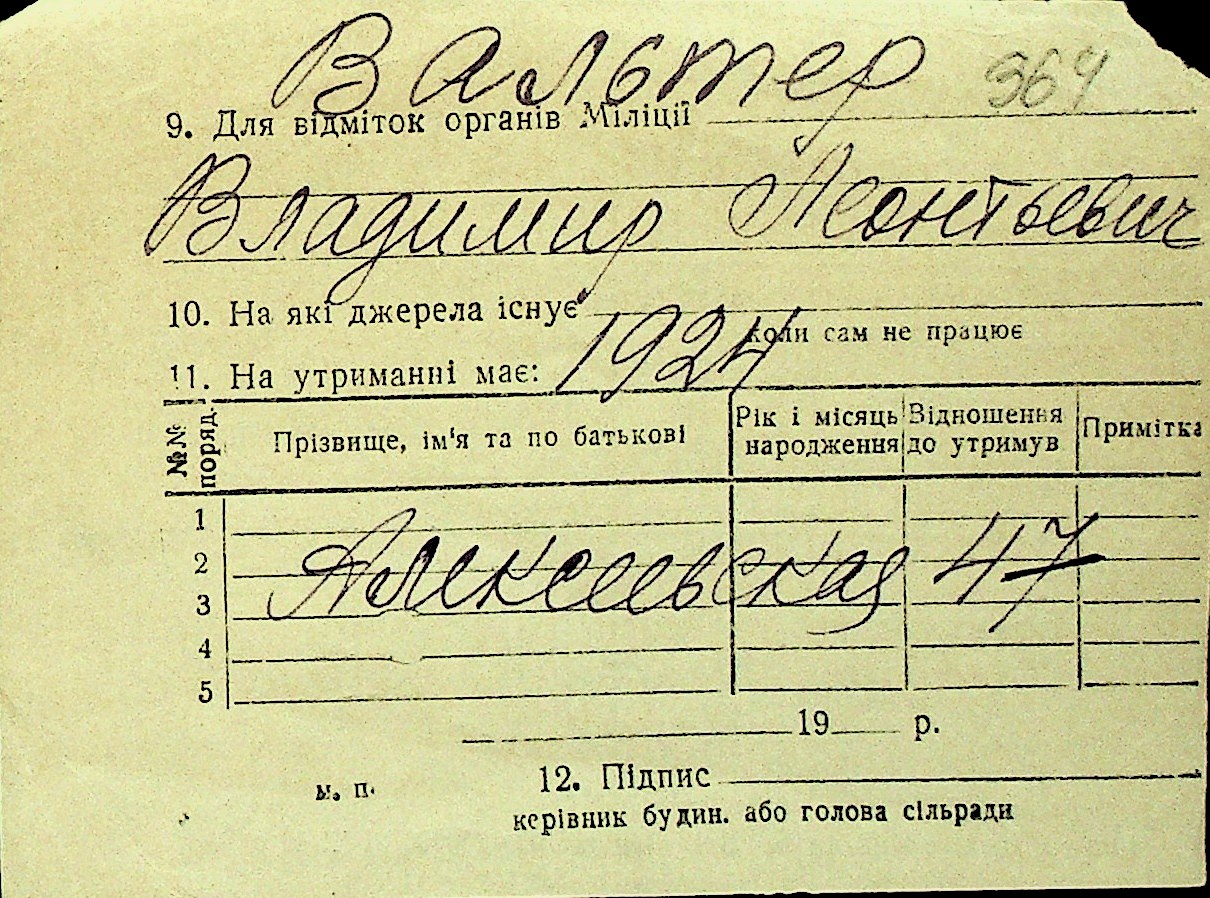 Вальтер 364
9. Для відміток органів Міліції
Владимир Леонтьевич
10. На які джерела існує
коли сам не працює
1924
11. На утриманні має:
№№ поряд.
Прізвище, ім'я та по батькові
Рік і місяць народження
Відношення до утримув
Примітка
1
2
Алексеевская 47
3
4
5
19 р.
м. п.
12. Підпис
керівник будин. або голова сільради